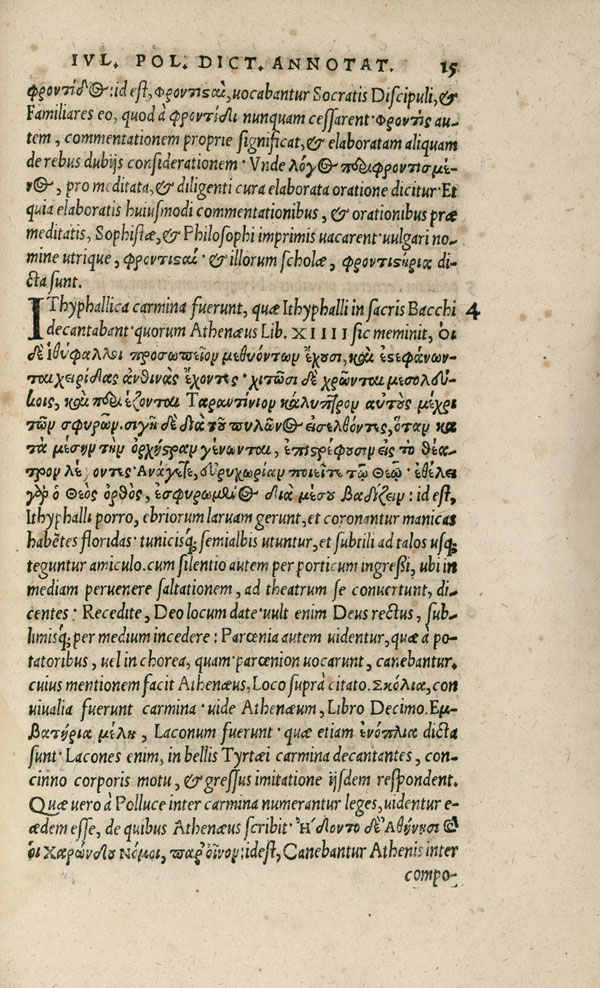 IVL. POL. DICT. ANNOTAT. 15
φροντίδος: id est, φροντισαὶ, uocabantur Socratis Discipuli, &
Familiares eo, quod à φροντίδι nunquam cessarent. Φροντὶς au-
tem, commentationem proprie significat, & elaboratam aliquam
de rebus dubijs considerationem. Vnde λόγος πεφροντισμέ-
νος, pro meditata, & diligenti cura elaborata oratione dicitur. Et
quia elaboratis huiusmodi commentationibus, & orationibus præ
meditatis, Sophistæ, & Philosophi imprimis uacarent. uulgari no-
mine utrique, φροντισαί. & illorum scholæ, φροντιστήρια di-
cta sunt.
IThyphallica carmina fuerunt, quæ Ithyphalli in sacris Bacchi 4
decantabant. quorum Athenæus Lib. XIIII sic meminit, Οἱ
δὲ ἰθύφαλλοι προσωπεῖον μεθυόντων ἔχουσι, καὶ ἐστεφάνων-
ται χειρίδας ἀνθινὰς ἔχοντες. χιτῶσι δὲ χρῶνται μεσολεύ-
κοις, καὶ περιέζονται Ταραντίνιον καλύπτρον αὐτοὺς μέχρι
τῶν σφυρῶν. σιγῇ δὲ διὰ τοῦ πυλῶνος εἰσελθόντες, ὅταν κα
τὰ μέσην τὴν ὀρχήστραν γένωνται, ἐπιστρέφουσιν εἰς τὸ θέα-
τρον λέγοντες. Ἀνάγετε, εὐρυχωρίαν ποιεῖτε τῷ Θεῷ. ἐθέλει
γὰρ ὁ Θεὸς ὀρθὸς, ἐσφυρωμένος διὰ μέσου βαδίζειν: id est,
Ithyphalli porro, ebriorum laruam gerunt, et coronantur manicas
habẽtes floridas. tunicisq; semialbis utuntur, et subtili ad talos usq;
teguntur amiculo. cum silentio autem per porticum ingressi, ubi in
mediam peruenere saltationem, ad theatrum se conuertunt, di-
centes: Recedite, Deo locum date. uult enim Deus rectus, sub-
limisq; per medium incedere: Parœnia autem uidentur, quæ à po-
tatoribus, uel in chorea, quam παrœnion uocarunt, canebantur.
cuius mentionem facit Athenæus, Loco suprà citato. Σκόλια, con
uiualia fuerunt carmina. uide Athenæum, Libro Decimo. Εμ-
βατήρια μέλη, Laconum fuerunt. quæ etiam ἐνόπλια dicta
sunt. Lacones enim, in bellis Tyrtæi carmina decantantes, con-
cinno corporis motu, & gressus imitatione ijsdem respondent.
Quæ uero à Polluce inter carmina numerantur leges, uidentur e-
ædem esse, de quibus Athenæus scribit. Ἤδοντο δὲ Ἀθήνησι &
οἱ Χαρώνδου Νόμοι, παρ' οἶνον: id est, Canebantur Athenis inter
compo-